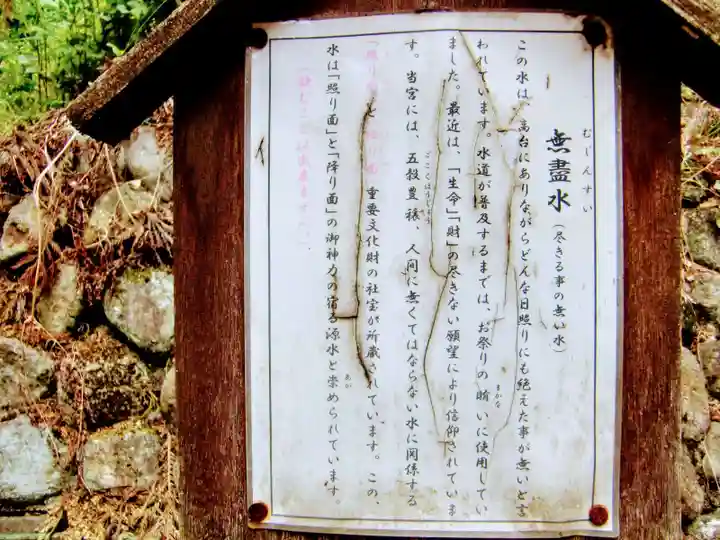 無盡水（尽きる事の無い水）
むじんすい
この水は、高台にありながらどんな日照りにも絶えた事が無いと言
われています。水道が普及するまでは、お祭りの賄いに使用してい
まかな
ました。最近は、「生命」「財」の尽きない願望により信仰されていま
す。当宮には、五穀豊穣、人間に無くてはならない水に関係する
ごこくほうじょう
重要文化財の社宝が所蔵されています。この、
水は「照り面」と「降り面」の御神力の宿る源水と崇められています。
あが